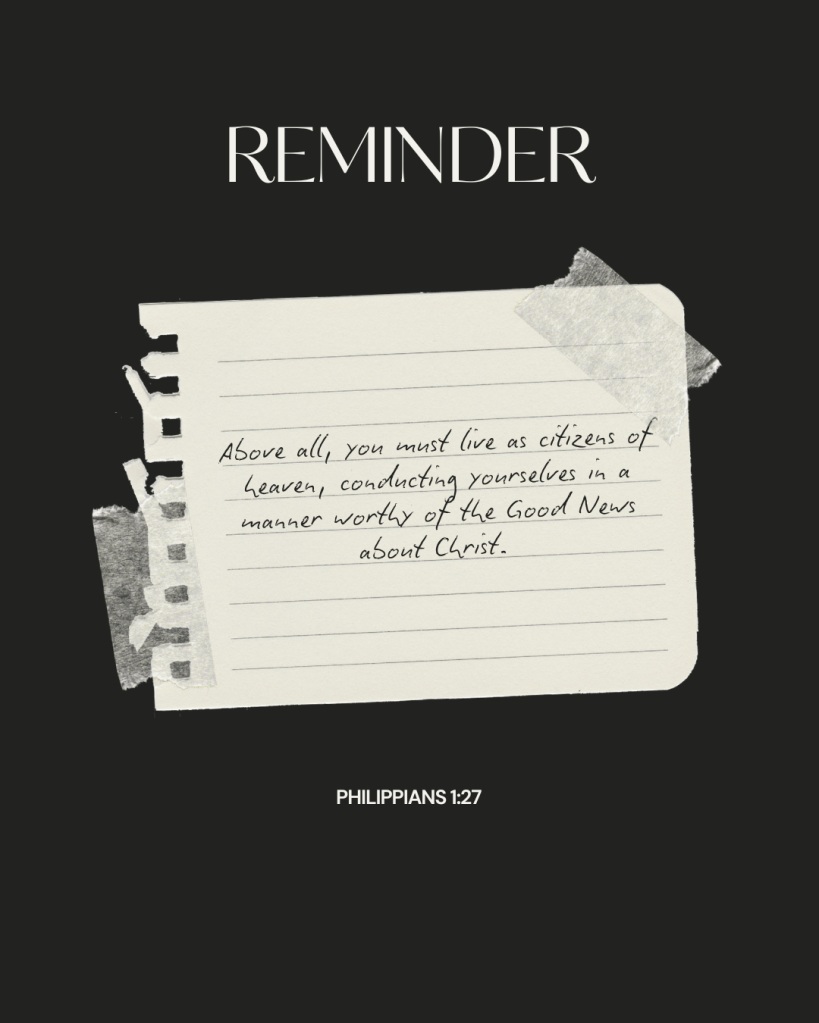 REMINDER
Above all, you must live as citizens of
heaven, conducting yourselves in a
manner worthy of the Good News
about Christ.
PHILIPPIANS 1:27